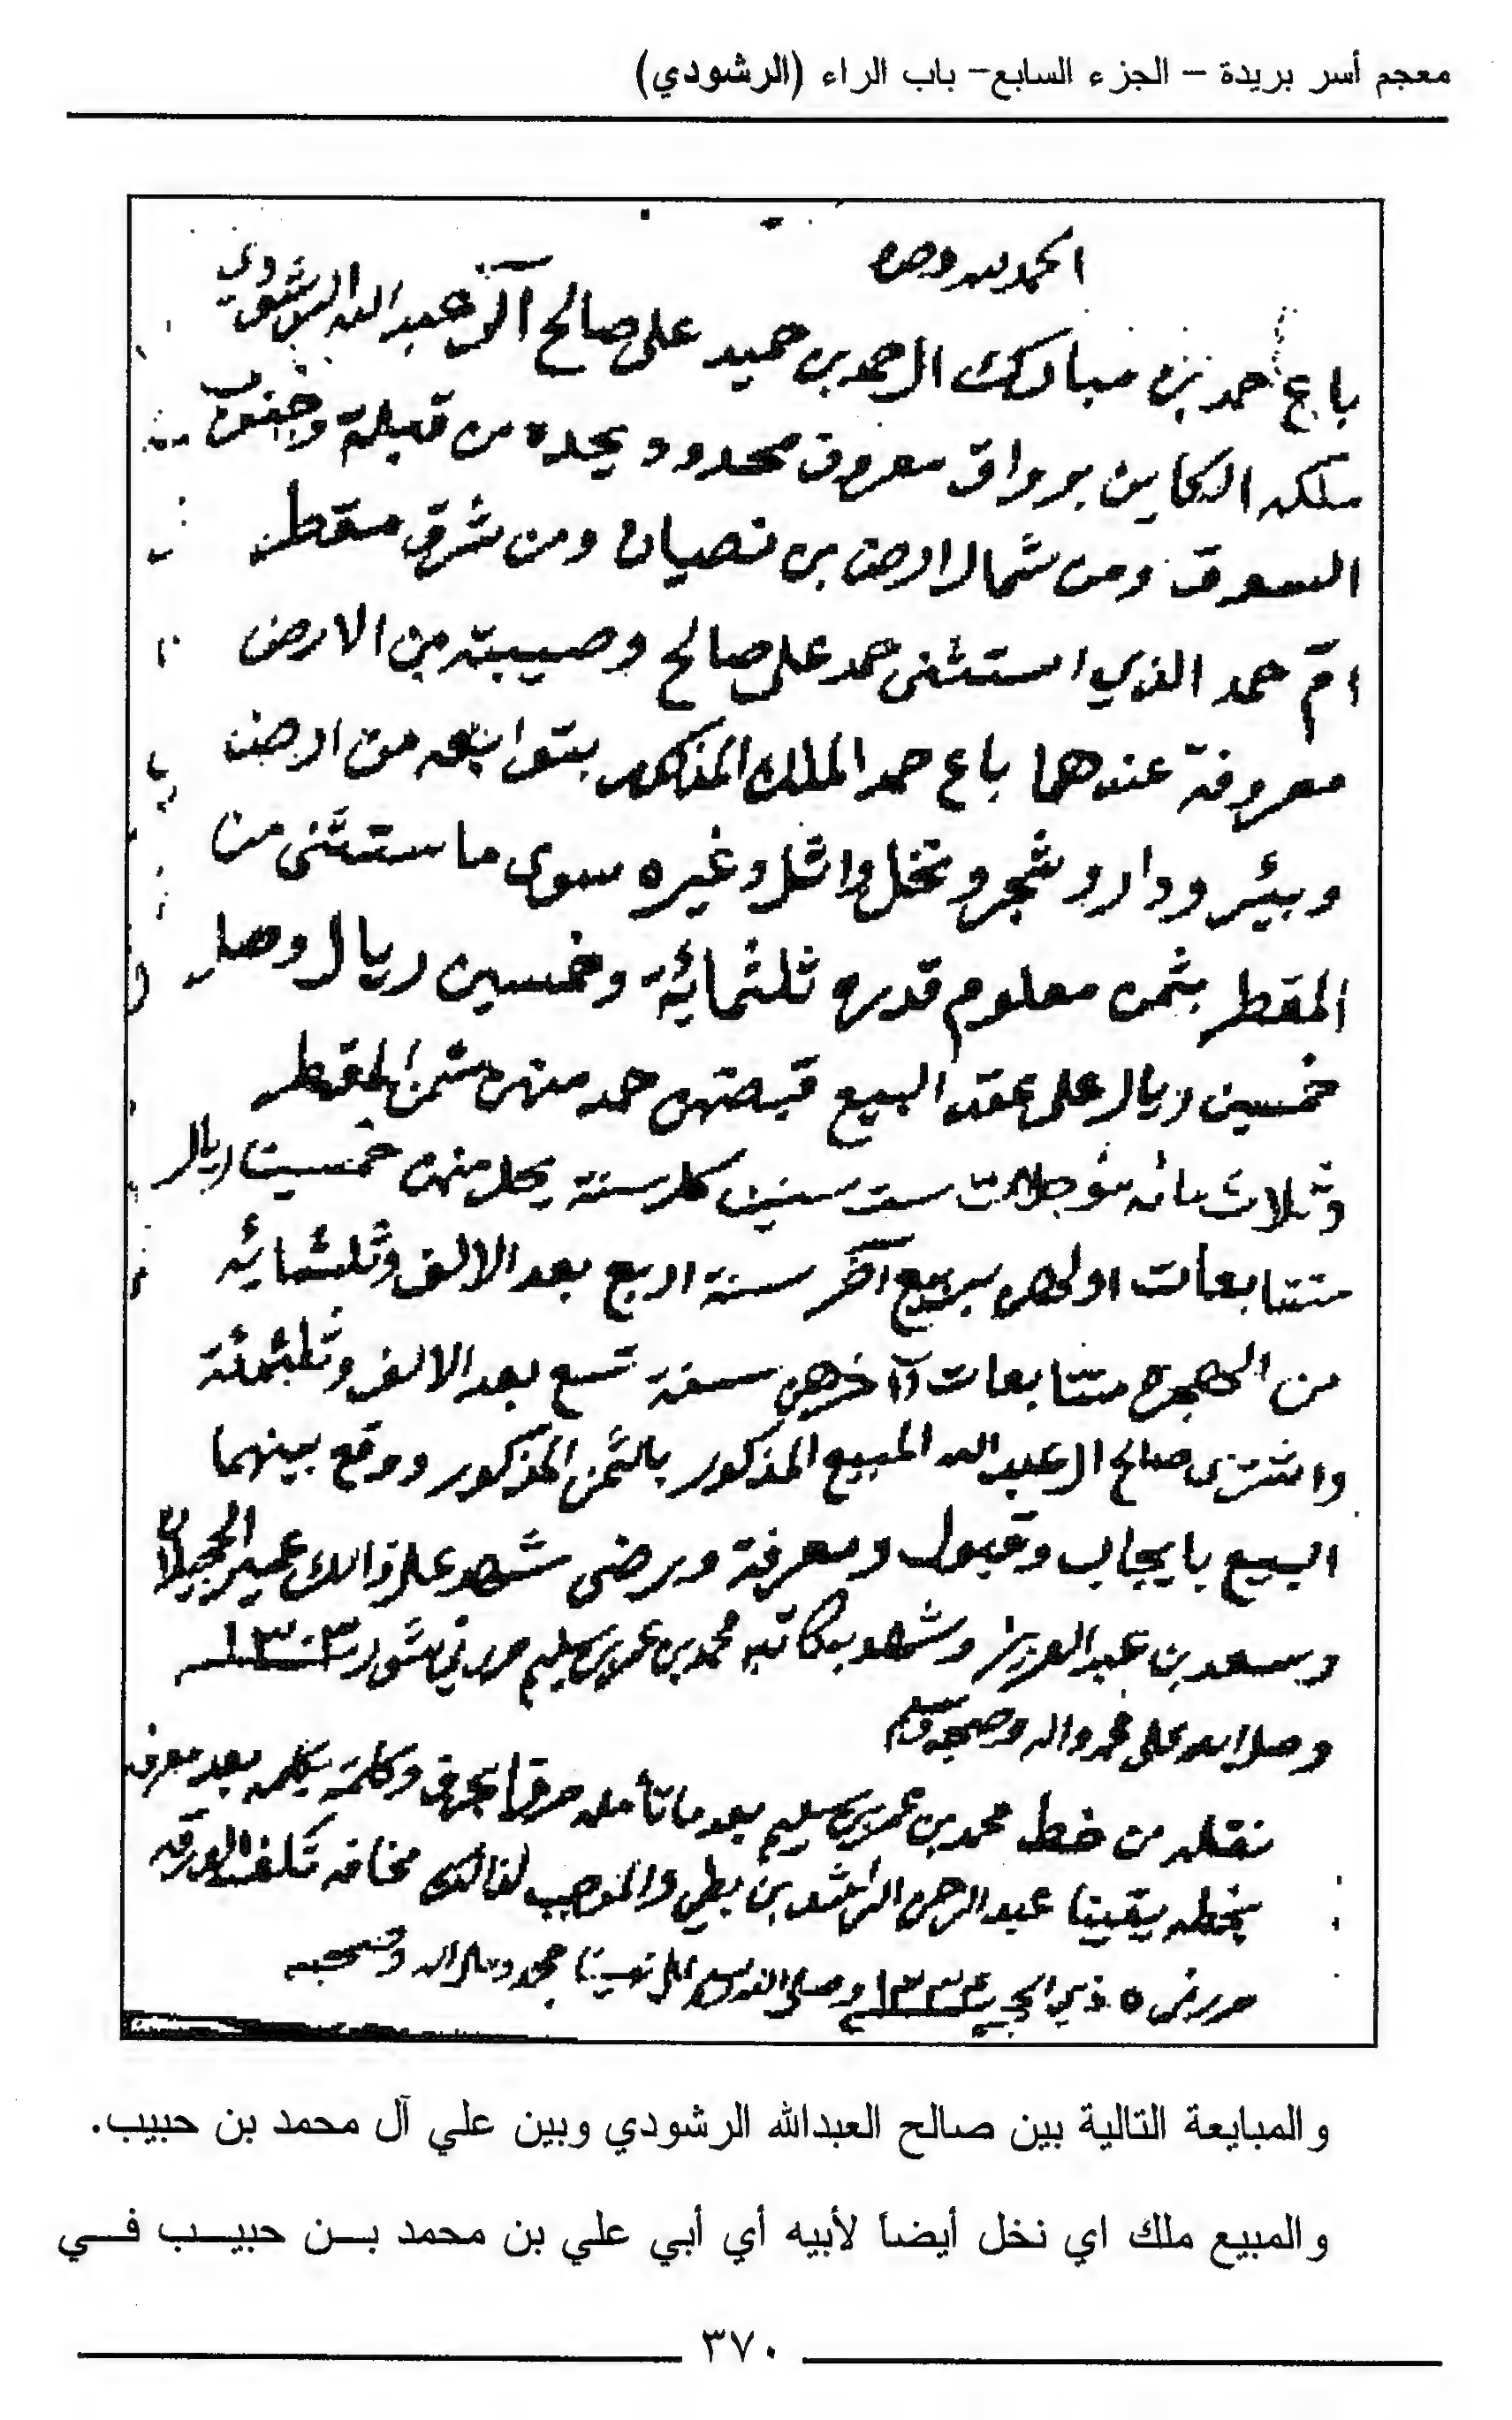 معجم أسر بريدة – الجزء السابع– باب الراء (الرشودي)
الحمد لله وحده
باع حمد بن مبارك الحمد بن حميد على صالح آل عبد الله الرشودي
ملكه الكاين برواق معروف محدود يحده من قبلة وجنوب
السوق ومن شمال ارض بن نصيان ومن شرق مقطر
ام حمد الذي استثنى حمد على صالح وصيبته من الارض
معروفة عندهما باع حمد الملك المذكور بتوابعه من ارض
وبيئر ودار وشجر ونخل واثل وغيره سوى ما ستثنى من
المقطر بثمن معلوم قدره ثلثمائة وخمسين ريال وصل
خمسين ريال على عقد البيع قبضهن حمد منهن ثمن المقطر
وثلاث مائه مؤجلات ست سنين كل سنة يحل منهن خمسين ريال
متتابعات اولهن بربيع آخر سنة اربع بعد الالف وثلثمائه
من الهجرة متتابعات آخرهن سنة تسع بعد الالف وثلثمئة
واشترى صالح ال عبد الله المبيع المذكور بالثمن المذكور ووقع بينهما
البيع بايجاب وقبول ومعرفة ورضى شهد على ذالك عمير الجبيلان
وسعد بن عبد العزيز وشهد به كاتبه محمد بن عمر بن سليم حرر في شهر ١٣٠٣
وصلى الله على محمد واله وصحبه وسلم
نقله من خط محمد بن عمر بن سليم بعد ما تأمله حرفا بحرف وكلمة بكلمه بعد معرفة
بخطه يقينا عبد الرحمن الراشد بن بطي والموجب لذالك مخافة تلف الورقه
حرر في ٥ ذي الحجة ١٣٣٤ وصلى الله وسلم على نبينا محمد وعلى اله وصحبه
والمبايعة التالية بين صالح العبدالله الرشودي وبين علي آل محمد بن حبيب.
والمبيع ملك اي نخل أيضاً لأبيه أي أبي علي بن محمد بن حبيب في
٣٧٠